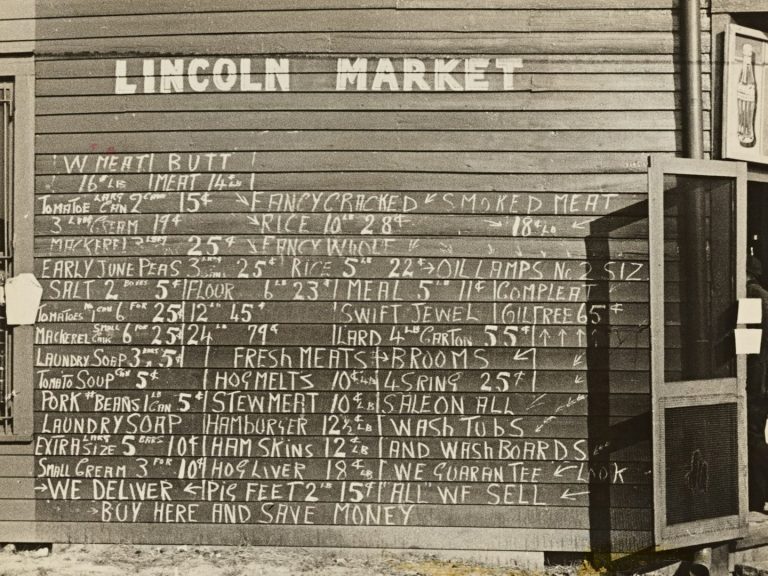 LINCOLN MARKET
W. MEAT | BUTT
16¢ LB | MEAT 14¢ LB
TOMATOE LARG CAN 2 CANS 15¢ → FANCY CRACKED ← SMOKED MEAT
3 LARG CREAM 19¢ → RICE 10 LB 28¢ → 18¢ LB ←
MACKEREL 25¢ → FANCY WHOLE ←
EARLY JUNE PEAS 3 25¢ | RICE 5 LB 22¢ → OIL LAMPS NO. 2 SIZ.
SALT 2 BOXES 5¢ | FLOUR 6 LB 23¢ | MEAL 5 LB 11¢ | COMPLEAT
TOMATOES CAN 6 FOR 25¢ | 12 LB 45¢ | SWIFT JEWEL | OIL FREE 65¢
MACKEREL SMALL CANS 6 FOR 25¢ | 24 LB 79¢ | LARD 4 LB CARTON 55¢ | ↑ ↑ ↑ ↑
LAUNDRY SOAP 3 BARS 5¢ | FRESH MEATS → BROOMS ←
TOMATO SOUP CAN 5¢ | HOG MELTS 10¢ LB | 4 SRING 25¢ |
PORK & BEANS 1 CAN 5¢ | STEW MEAT 10¢ LB | SALE ON ALL
LAUNDRY SOAP | HAMBURGER 12½¢ LB | WASH TUBS ←
EXTRA LARG SIZE 5 BARS 10¢ | HAM SKINS 12¢ LB | AND WASH BOARDS
SMALL CREAM 3 FOR 10¢ | HOG LIVER 18¢ LB | WE GUARANTEE ← LOOK
→ WE DELIVER ← | PIG FEET 2 LB 15¢ | ALL WE SELL ←
→ BUY HERE AND SAVE MONEY